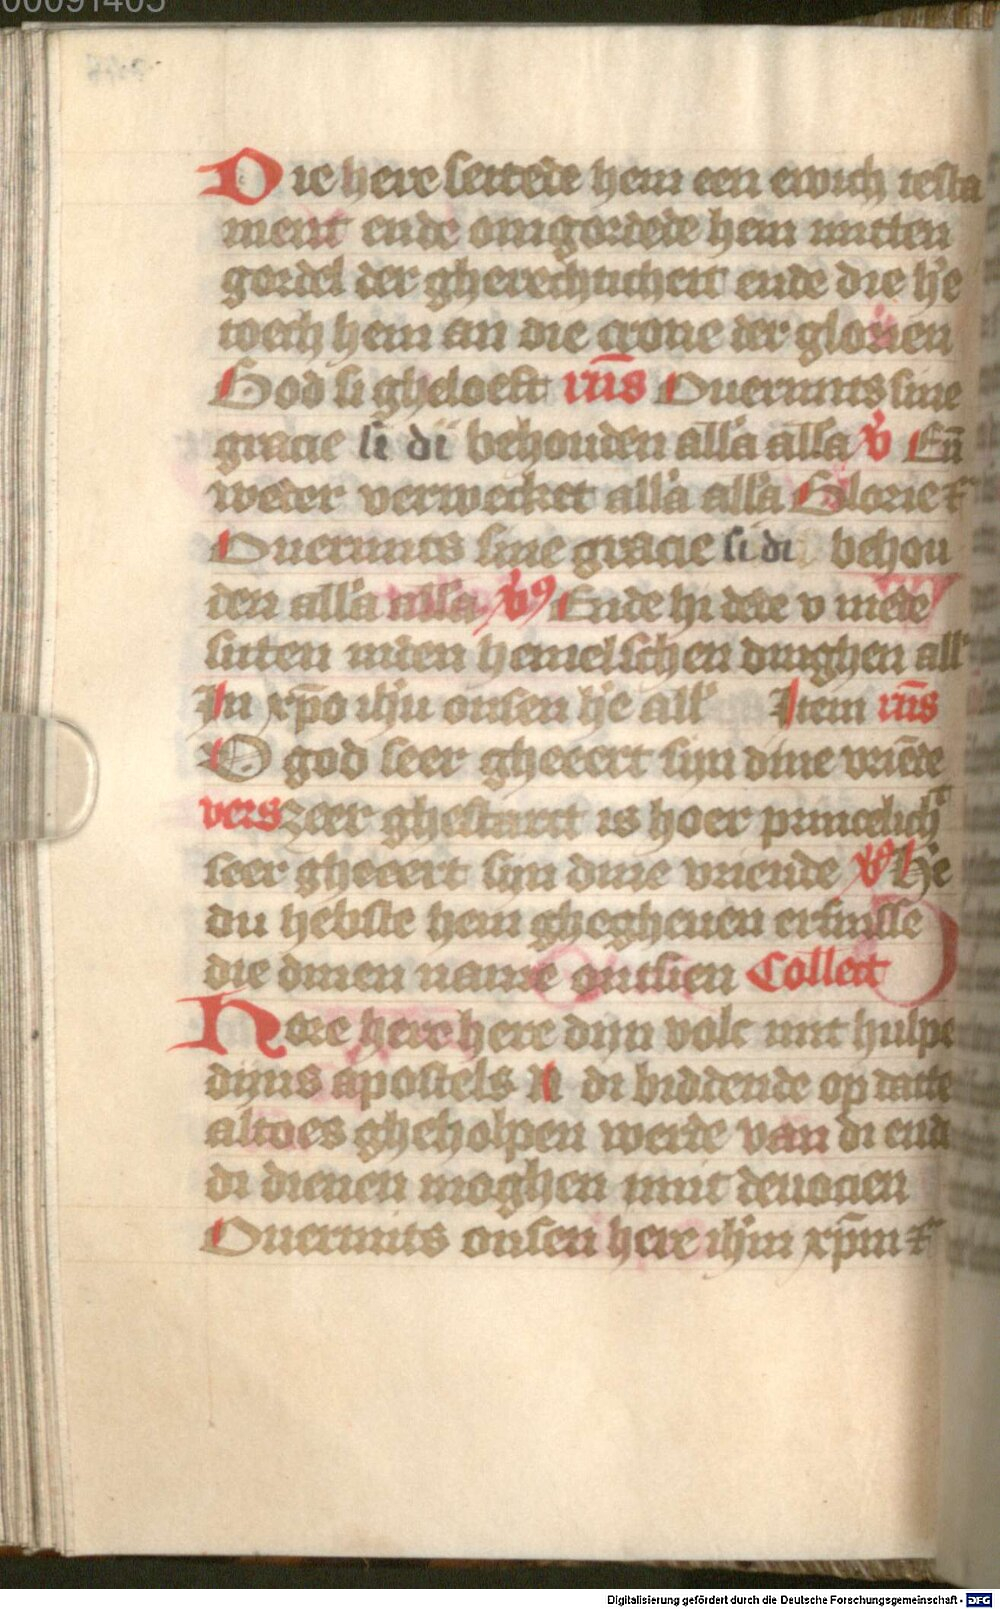 00091405
Die here settede hem een ewich testa
ment ende omgordede hem mitten
gordel der gherechticheit ende die h'e
toech hem an die crone der glorien
God si gheloeft r̄n̄s Ouermits sine
gracie si di behouden all'a all'a v̕ En̄
weder verwecket all'a all'a Glorie ⁊c
Ouermits sine gracie si di behou
den all'a all'a v̕s Ende hi dede v mede
sitten mittē hemelschen dinghen all'
In xp̄o ih'u onsen h'e all' Item r̄n̄s
O god seer gheeert sijn dine vriēde
vers zeer ghestarct is hoer princelich't
seer gheeert sijn dine vriende v̕s H'e
du hebste hem ghegheuen erfnisse
die dinen name ontsien Collect
Hore here here dijn volc mit hulpe
dijns apostels N di biddende op datte
altoes gheholpen werde van di ende
di dienen moghen mit deuocien
Ouermits onsen here ih'm xp̄m ⁊c
Digitalisierung gefördert durch die Deutsche Forschungsgemeinschaft - DFG